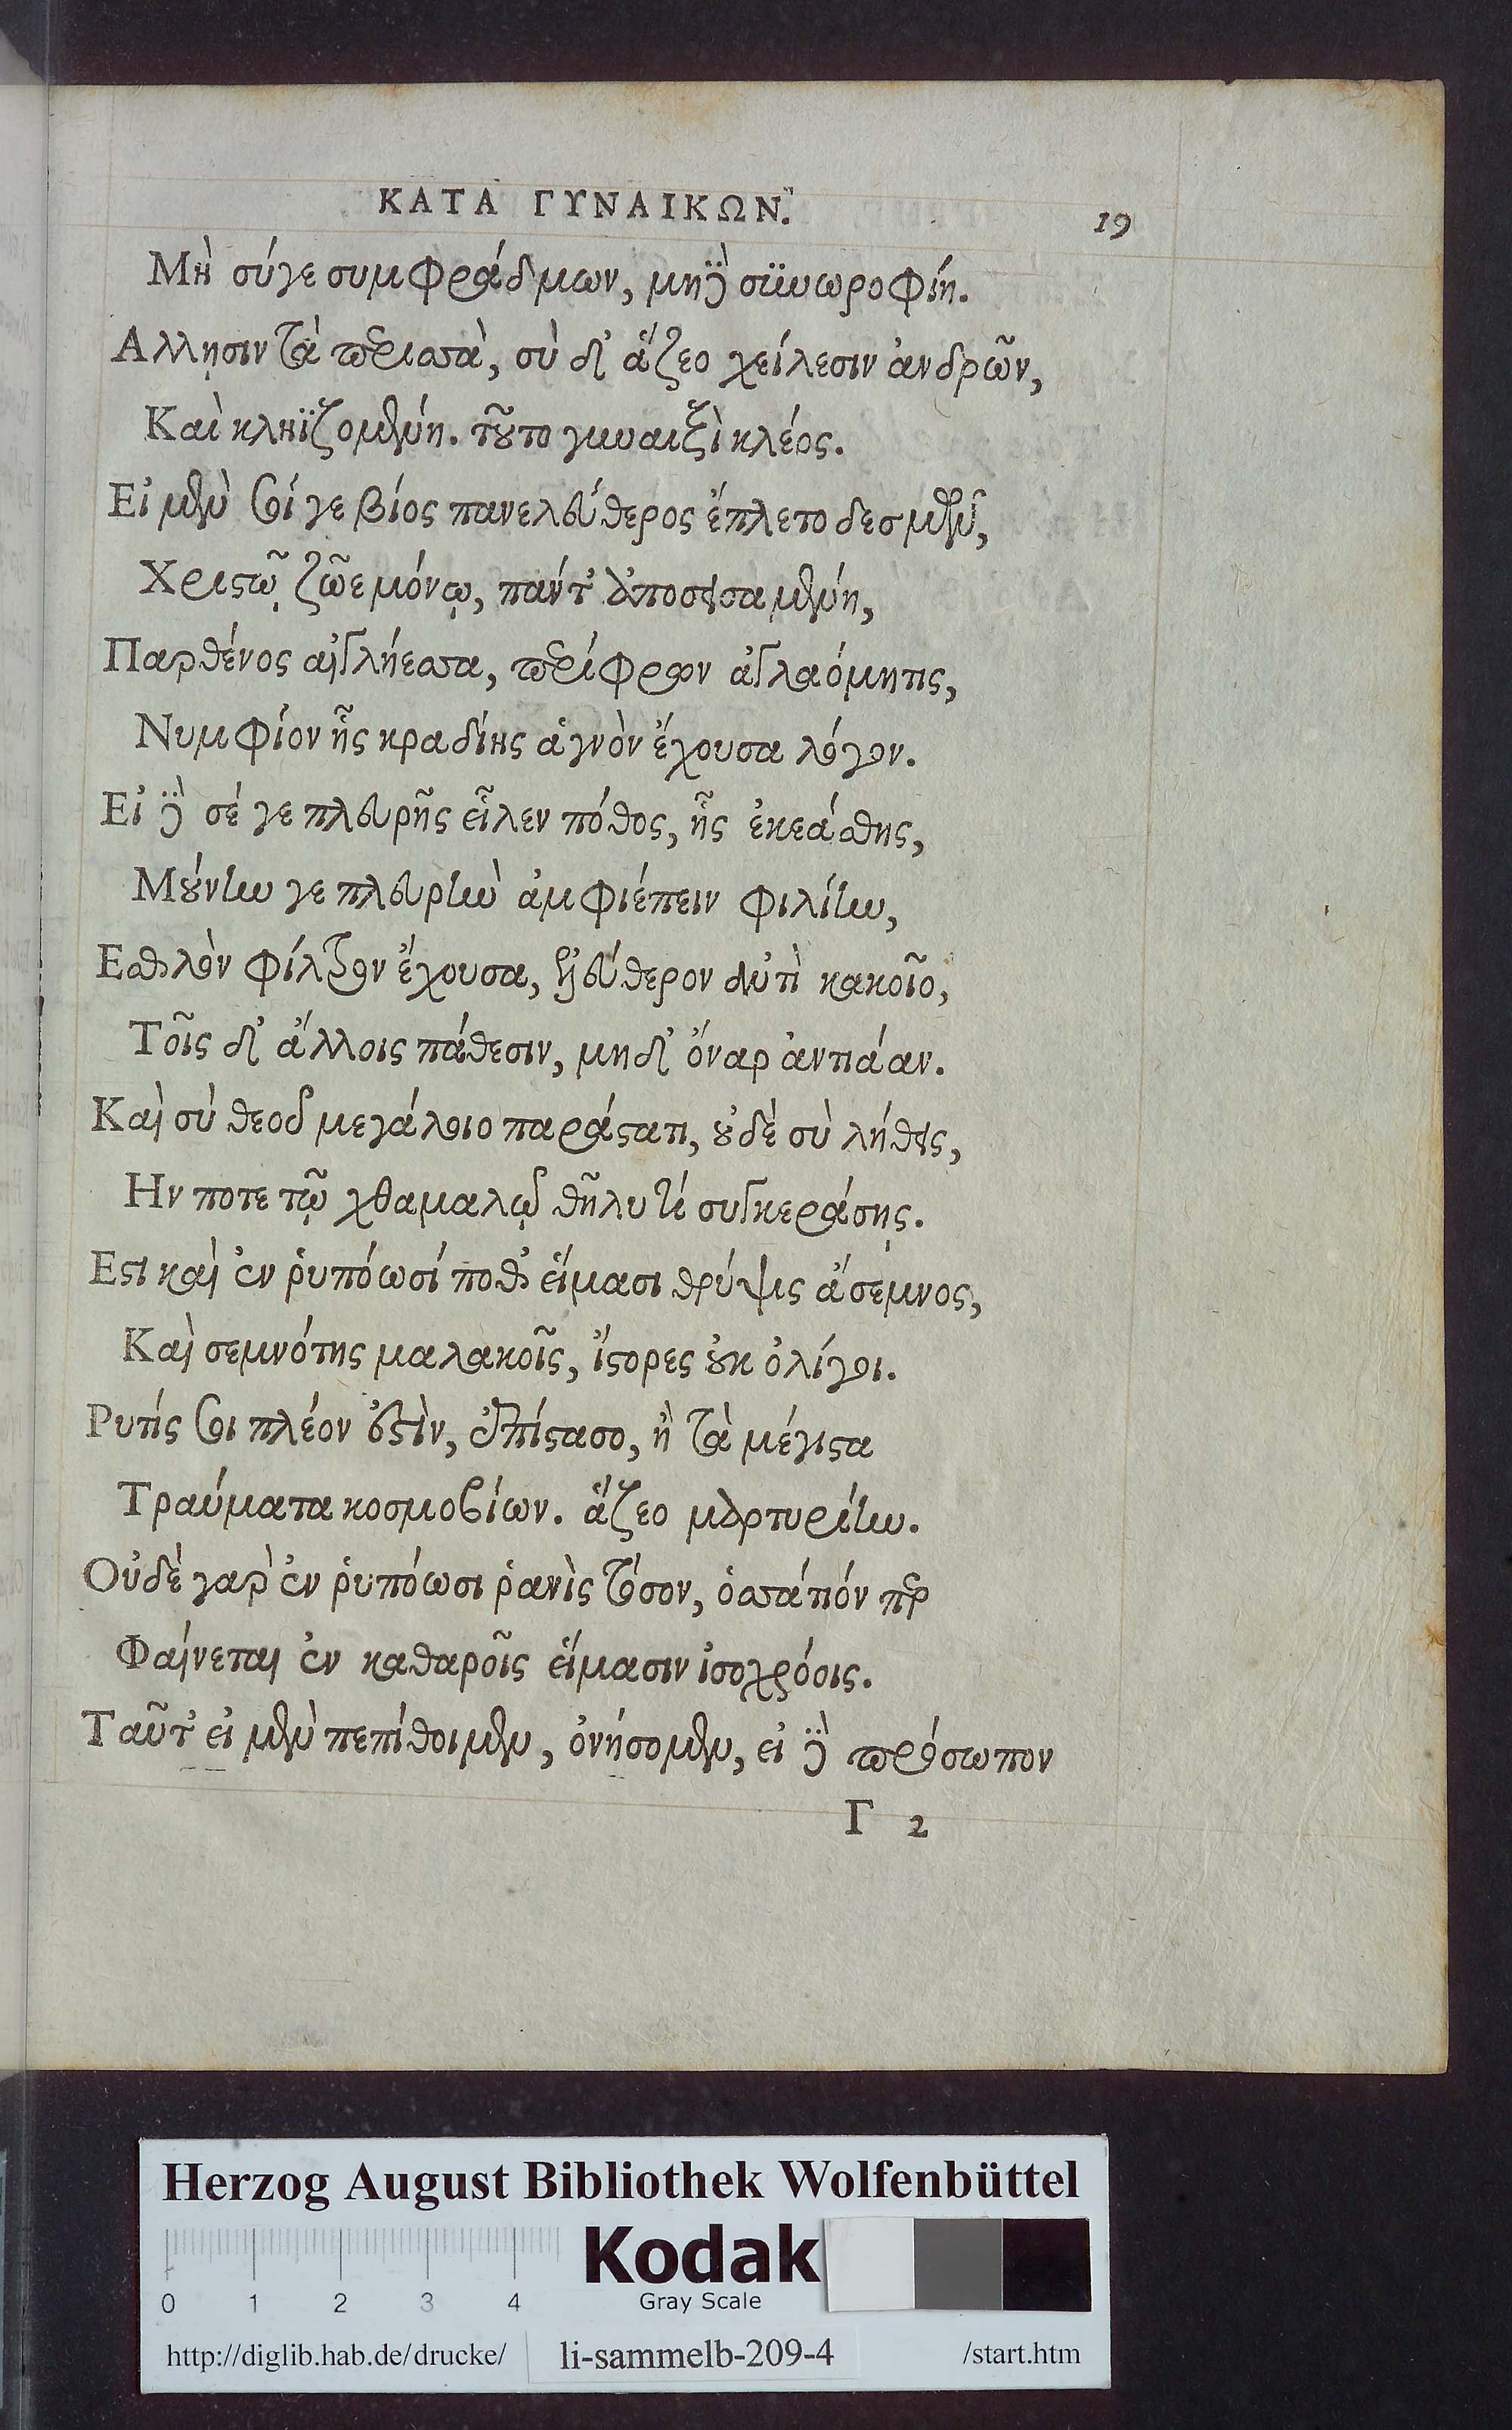 ΚΑΤΑ ΓΥΝΑΙΚΩΝ.
19
Μὴ σύγε συμφράδμων, μηδὲ συνωροφίη.
Αλλῃσιν τὰ περισσὰ, σὺ δ' ἅζεο χείλεσιν ἀνδρῶν,
Καὶ κληϊζομένη. τοῦτο γυναιξὶ κλέος.
Εἰ μὲν σοί γε βίος πανελεύθερος ἔπλετο δεσμῶν,
Χριστῷ ζῶε μόνῳ, πάντ' ἀποσεισαμένη,
Παρθένος αἰγλήεσσα, περίφρων ἀγλαόμητις,
Νυμφίον ἧς κραδίης ἁγνὸν ἔχουσα λόγον.
Εἰ δὲ σέ γε πλευρῆς εἷλεν πόθος, ἧς ἐκεάσθης,
Μούνην γε πλευρὴν ἀμφιέπειν φιλίην,
Εσθλὸν φίλτρον ἔχουσα, ἐλεύθερον ἀντὶ κακοῖο,
Τοῖς δ' ἄλλοις πάθεσιν, μηδ' ὄναρ ἀντιάαν.
Καὶ σύ θεοῦ μεγάλοιο παράστατι, οὐδὲ σὺ λήθεις,
Ην ποτε τῷ χθαμαλῷ θῆλύ τι συγκεράσῃς.
Εστι καὶ ἐν ῥυπόωσί ποθ' εἵμασι θρύψις ἄσεμνος,
Καὶ σεμνότης μαλακοῖς, ἵστορες οὐκ ὀλίγοι.
Ρυτίς σοι πλέον ἐστὶν, ἐπίστασο, ἢ τὰ μέγιστα
Τραύματα κοσμοβίων. ἅζεο μαρτυρίην.
Οὐδὲ γὰρ ἐν ῥυπόωσι ῥανὶς τόσον, ὁσσάτιόν περ
Φαίνεται ἐν καθαροῖς εἵμασιν ἰσοχρόοις.
Ταῦτ' εἰ μὲν πεπίθοιμεν, ὀνήσομεν, εἰ δὲ πρόσωπον
Γ 2
Herzog August Bibliothek Wolfenbüttel
Kodak
Gray Scale
0 1 2 3 4
http://diglib.hab.de/drucke/ li-sammelb-209-4 /start.htm